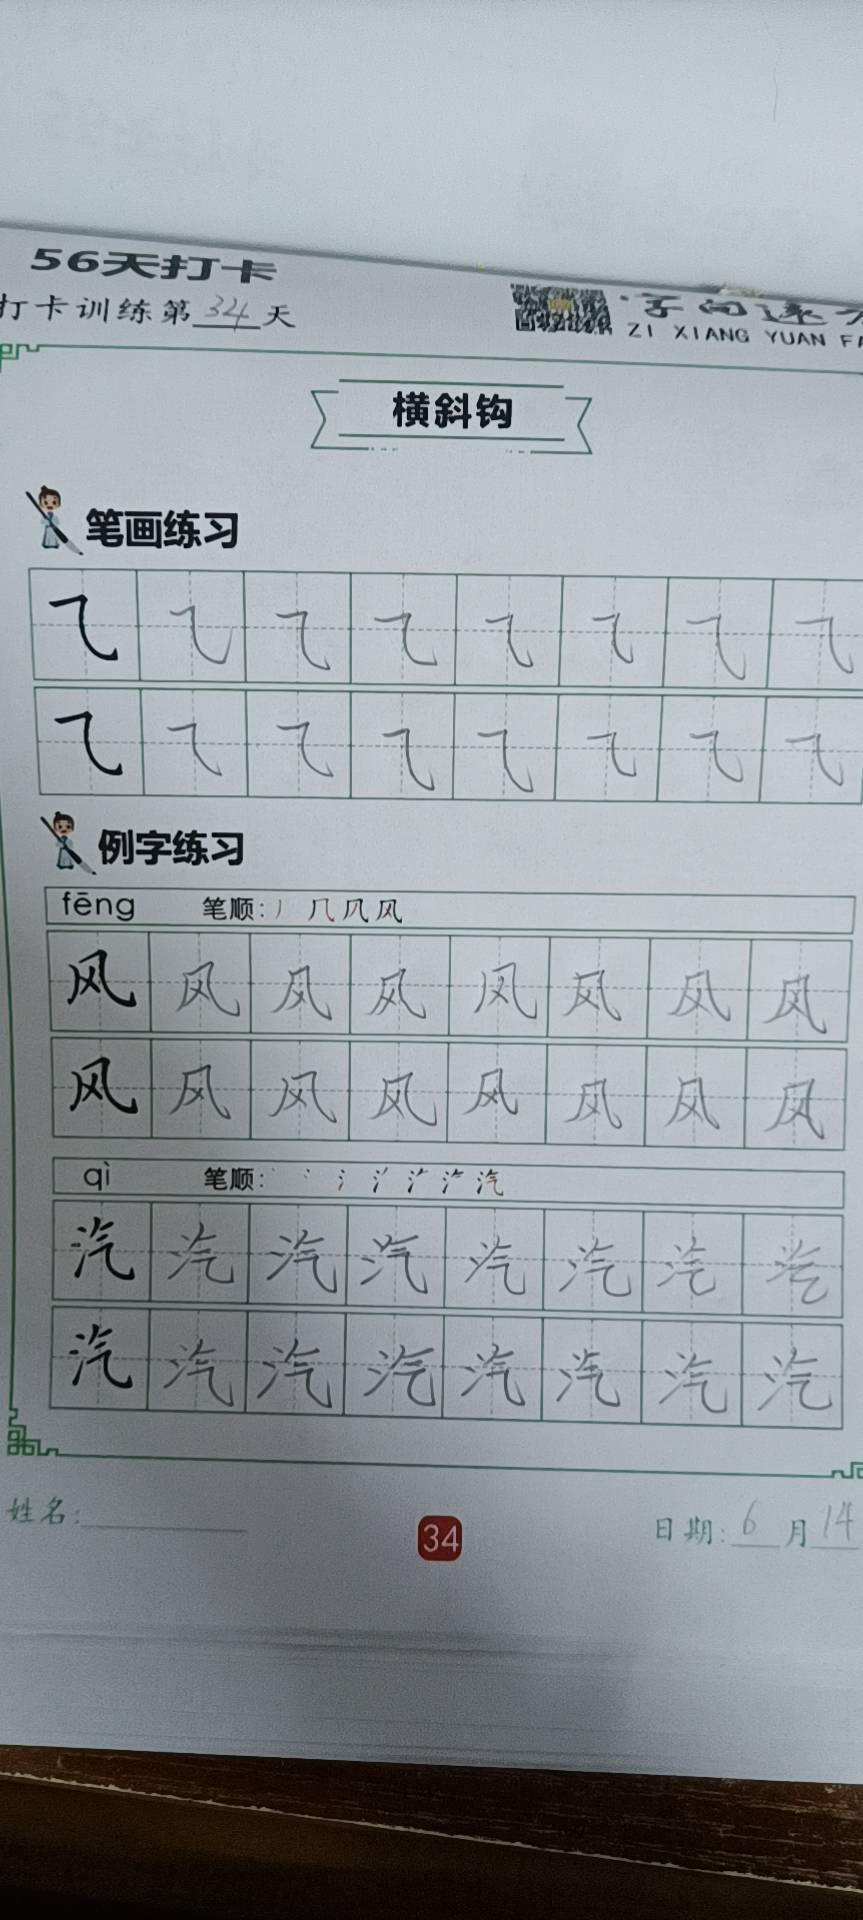 56天打卡
打卡训练第34天
字向
ZI XIANG YUAN
横斜钩
笔画练习
⺄ ⺄ ⺄ ⺄ ⺄ ⺄ ⺄ ⺄
⺄ ⺄ ⺄ ⺄ ⺄ ⺄ ⺄ ⺄
例字练习
fēng 笔顺: 丿 ⺇ 风
风 风 风 风 风 风 风 风
风 风 风 风 风 风 风 风
qì 笔顺: 丶 氵 汽
汽 汽 汽 汽 汽 汽 汽 汽
汽 汽 汽 汽 汽 汽 汽 汽
姓名: 34 日期: 6月14